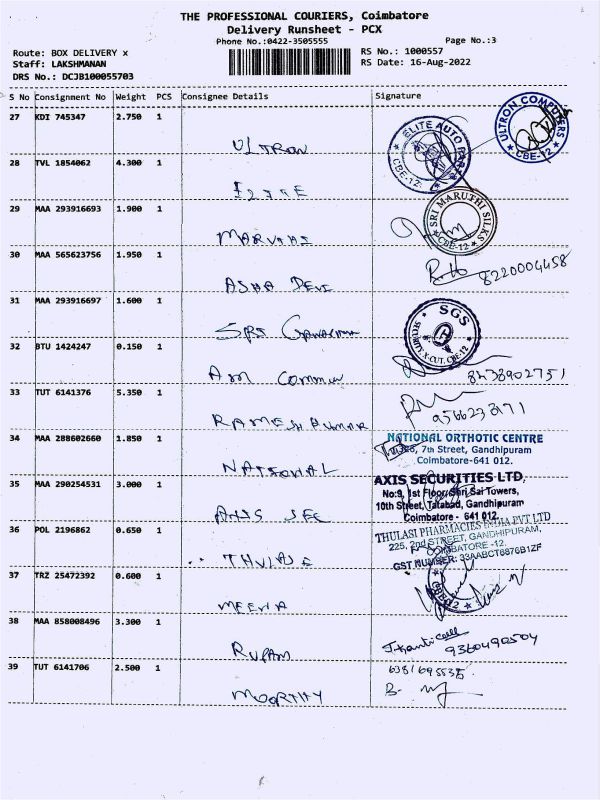 THE PROFESSIONAL COURIERS, Coimbatore
Delivery Runsheet - PCX
Phone No.:0422-3505555
Page No.:3
Route: BOX DELIVERY x
RS No.: 1000557
Staff: LAKSHMANAN
RS Date: 16-Aug-2022
DRS No.: DCJB100055703
S No Consignment No Weight PCS Consignee Details Signature
27 KDI 745347 2.750 1
ULTRON
ULTRON COMPUTERS
CBE-12
ELITE AUTO PARTS
CBE-12
28 TVL 1854062 4.300 1
29 MAA 293916693 1.900 1
SRI MARUTHI SILKS
CBE-12
30 MAA 565623756 1.950 1
ASHA DEVI
8220004458
31 MAA 293916697 1.600 1
SRI
SGS
SECURITY-X-CUT, CBE-12
32 BTU 1424247 0.150 1
AM
8438902751
33 TUT 6141376 5.350 1
RAMESH KUMAR
34 MAA 288602660 1.850 1
NATIONAL
NATIONAL ORTHOTIC CENTRE
7th Street, Gandhipuram
Coimbatore-641 012.
35 MAA 290254531 3.000 1
AXIS SEC
AXIS SECURITIES LTD,
No:9, 1st Floor, Shri Sai Towers,
10th Street, Tatabad, Gandhipuram
Coimbatore - 641 012.
36 POL 2196862 0.650 1
THULASI PHARMACIES INDIA PVT LTD
225, 2nd STREET, GANDHIPURAM,
COIMBATORE -12.
GST NUMBER: 33AABCT6876B1ZF
37 TRZ 25472392 0.600 1
MEENA
38 MAA 858008496 3.300 1
RUPAM
9360490504
39 TUT 6141706 2.500 1
MOORTHY